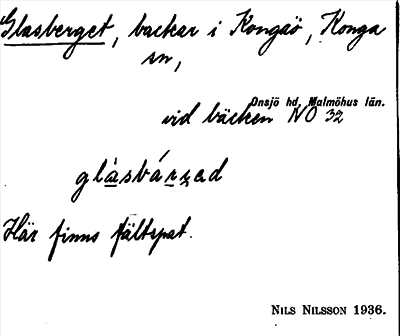 Glasberget, backar i Kongaö, Konga
sn,
Onsjö hd, Malmöhus län.
vid bäcken NO 32
glàsbárrad
Här finns fältspat.
NILS NILSSON 1936.